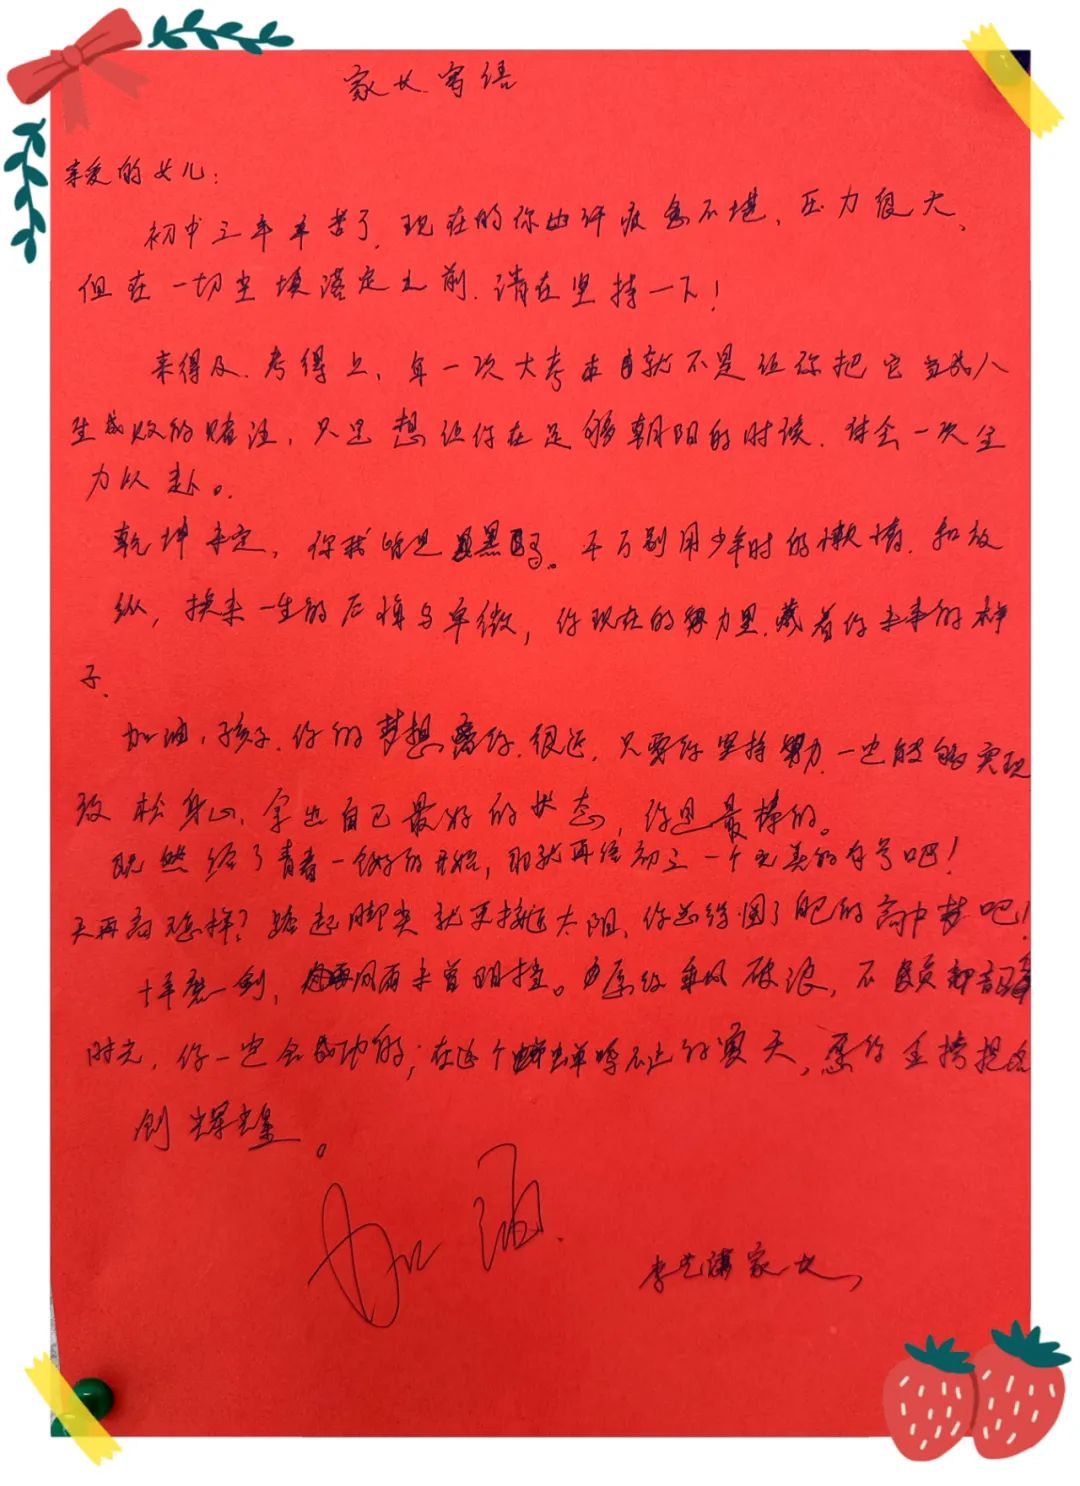 家长寄语
亲爱的女儿：
初中三年辛苦了，现在的你也许疲惫不堪，压力很大、
但在一切尘埃落定之前，请在坚持一下！
来得及，考得上，每一次大考本就不是让你把它当成人
生成败的赌注，只是想让你在足够朝阳的时候，体会一次全
力以赴。
乾坤未定，你我皆是黑马。千万别用少年时的懒惰，和放
纵，换来一生的后悔与卑微，你现在的努力里，藏着你未来的样
子.
加油，孩子，你的梦想离你很近，只要你坚持努力，一定能够实现
放松身心，拿出自己最好的状态，你是最棒的。
既然给了青春一个好的开始，那就再给初三一个完美的句号吧！
天再高怎样？踮起脚尖就更接近太阳，你必须圆了自己的高中梦吧！
十年磨一剑，风雨未曾阻挡。愿你乘风破浪，不负韶
时光，你一定会成功的；在这个蝉鸣不止的夏天，愿你金榜提名
创辉煌。
加油.
李艺 家长